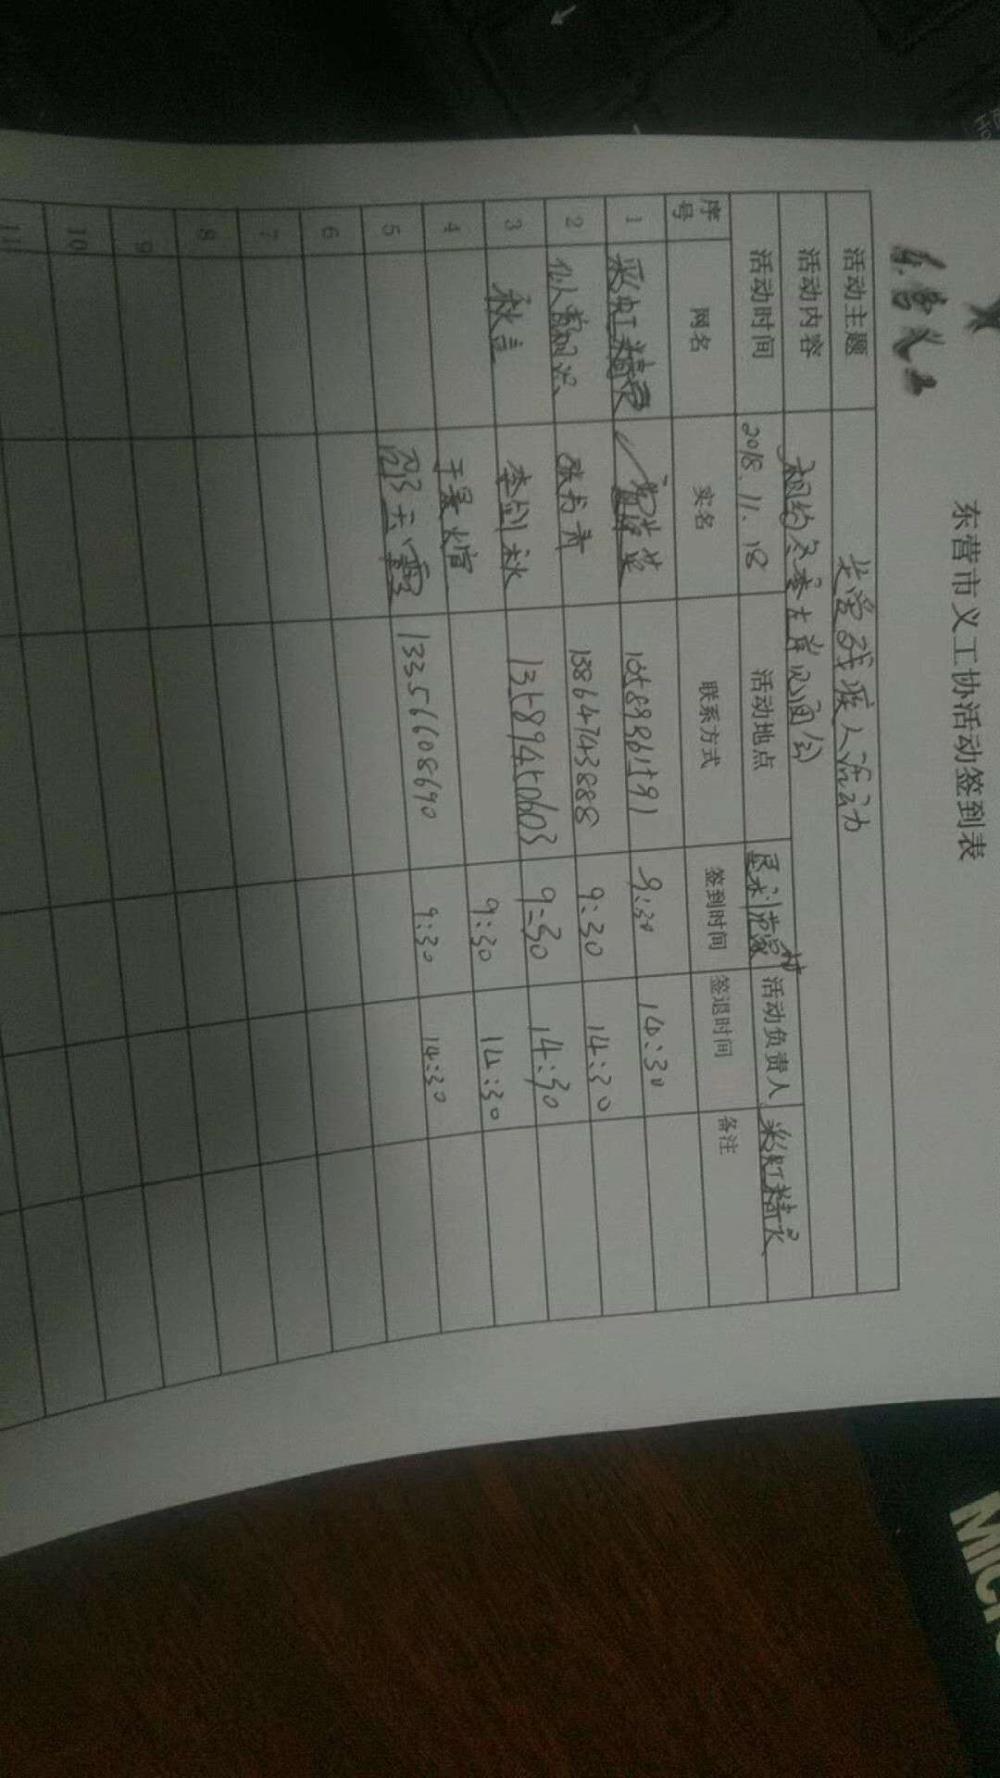 东营市义工协活动签到表
东营义工
活动主题 关爱残疾人活动
活动内容 相约冬季左岸见面会
活动时间 2018.11.18 活动地点 垦利 活动负责人 彩虹精灵
序号 网名 实名 联系方式 签到时间 签退时间 备注
1 彩虹精灵 9:30 14:30
2 张书青 13864743888 9:30 14:30
3 秋言 李剑秋 13589450603 9:30 14:30
4 于景煊 9:30 14:30
5 13356608690 9:30 14:30
6
7
8
9
10
11